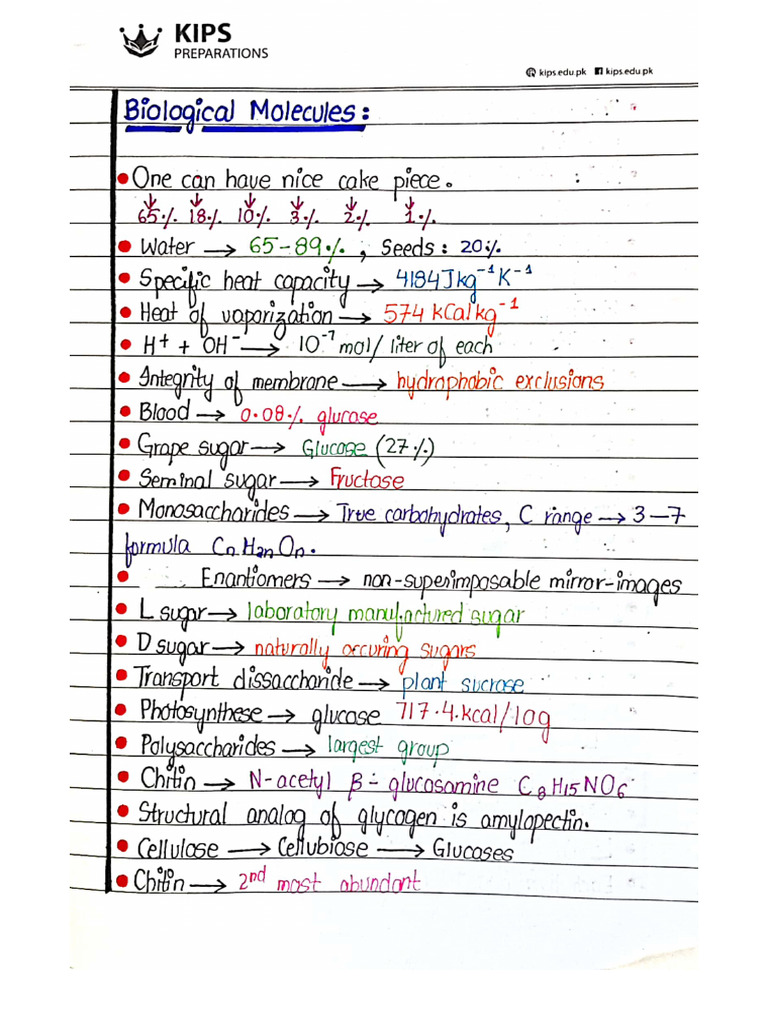 KIPS
PREPARATIONS
kips.edu.pk kips.edu.pk
Biological Molecules:
• One can have nice cake piece.
65% 18% 10% 3% 2% 1%
• Water → 65-89%, Seeds: 20%
• Specific heat capacity → 4184Jkg⁻¹K⁻¹
• Heat of vaporization → 574 kCalkg⁻¹
• H⁺ + OH⁻ → 10⁻⁷ mol/liter of each
• Integrity of membrane → hydrophobic exclusions
• Blood → 0.08% glucose
• Grape sugar → Glucose (27%)
• Seminal sugar → Fructose
• Monosaccharides → True carbohydrates, C range → 3-7
formula CnH2nOn.
• Enantiomers → non-superimposable mirror-images
• L sugar → laboratory manufactured sugar
• D sugar → naturally occuring sugars
• Transport dissaccharide → plant sucrose
• Photosynthese → glucose 717.4.kcal/10g
• Polysaccharides → largest group
• Chitin → N-acetyl β- glucosamine C₈H₁₅NO₆
• Structural analog of glycogen is amylopectin.
• Cellulose → Cellubiose → Glucoses
• Chitin → 2nd most abundant